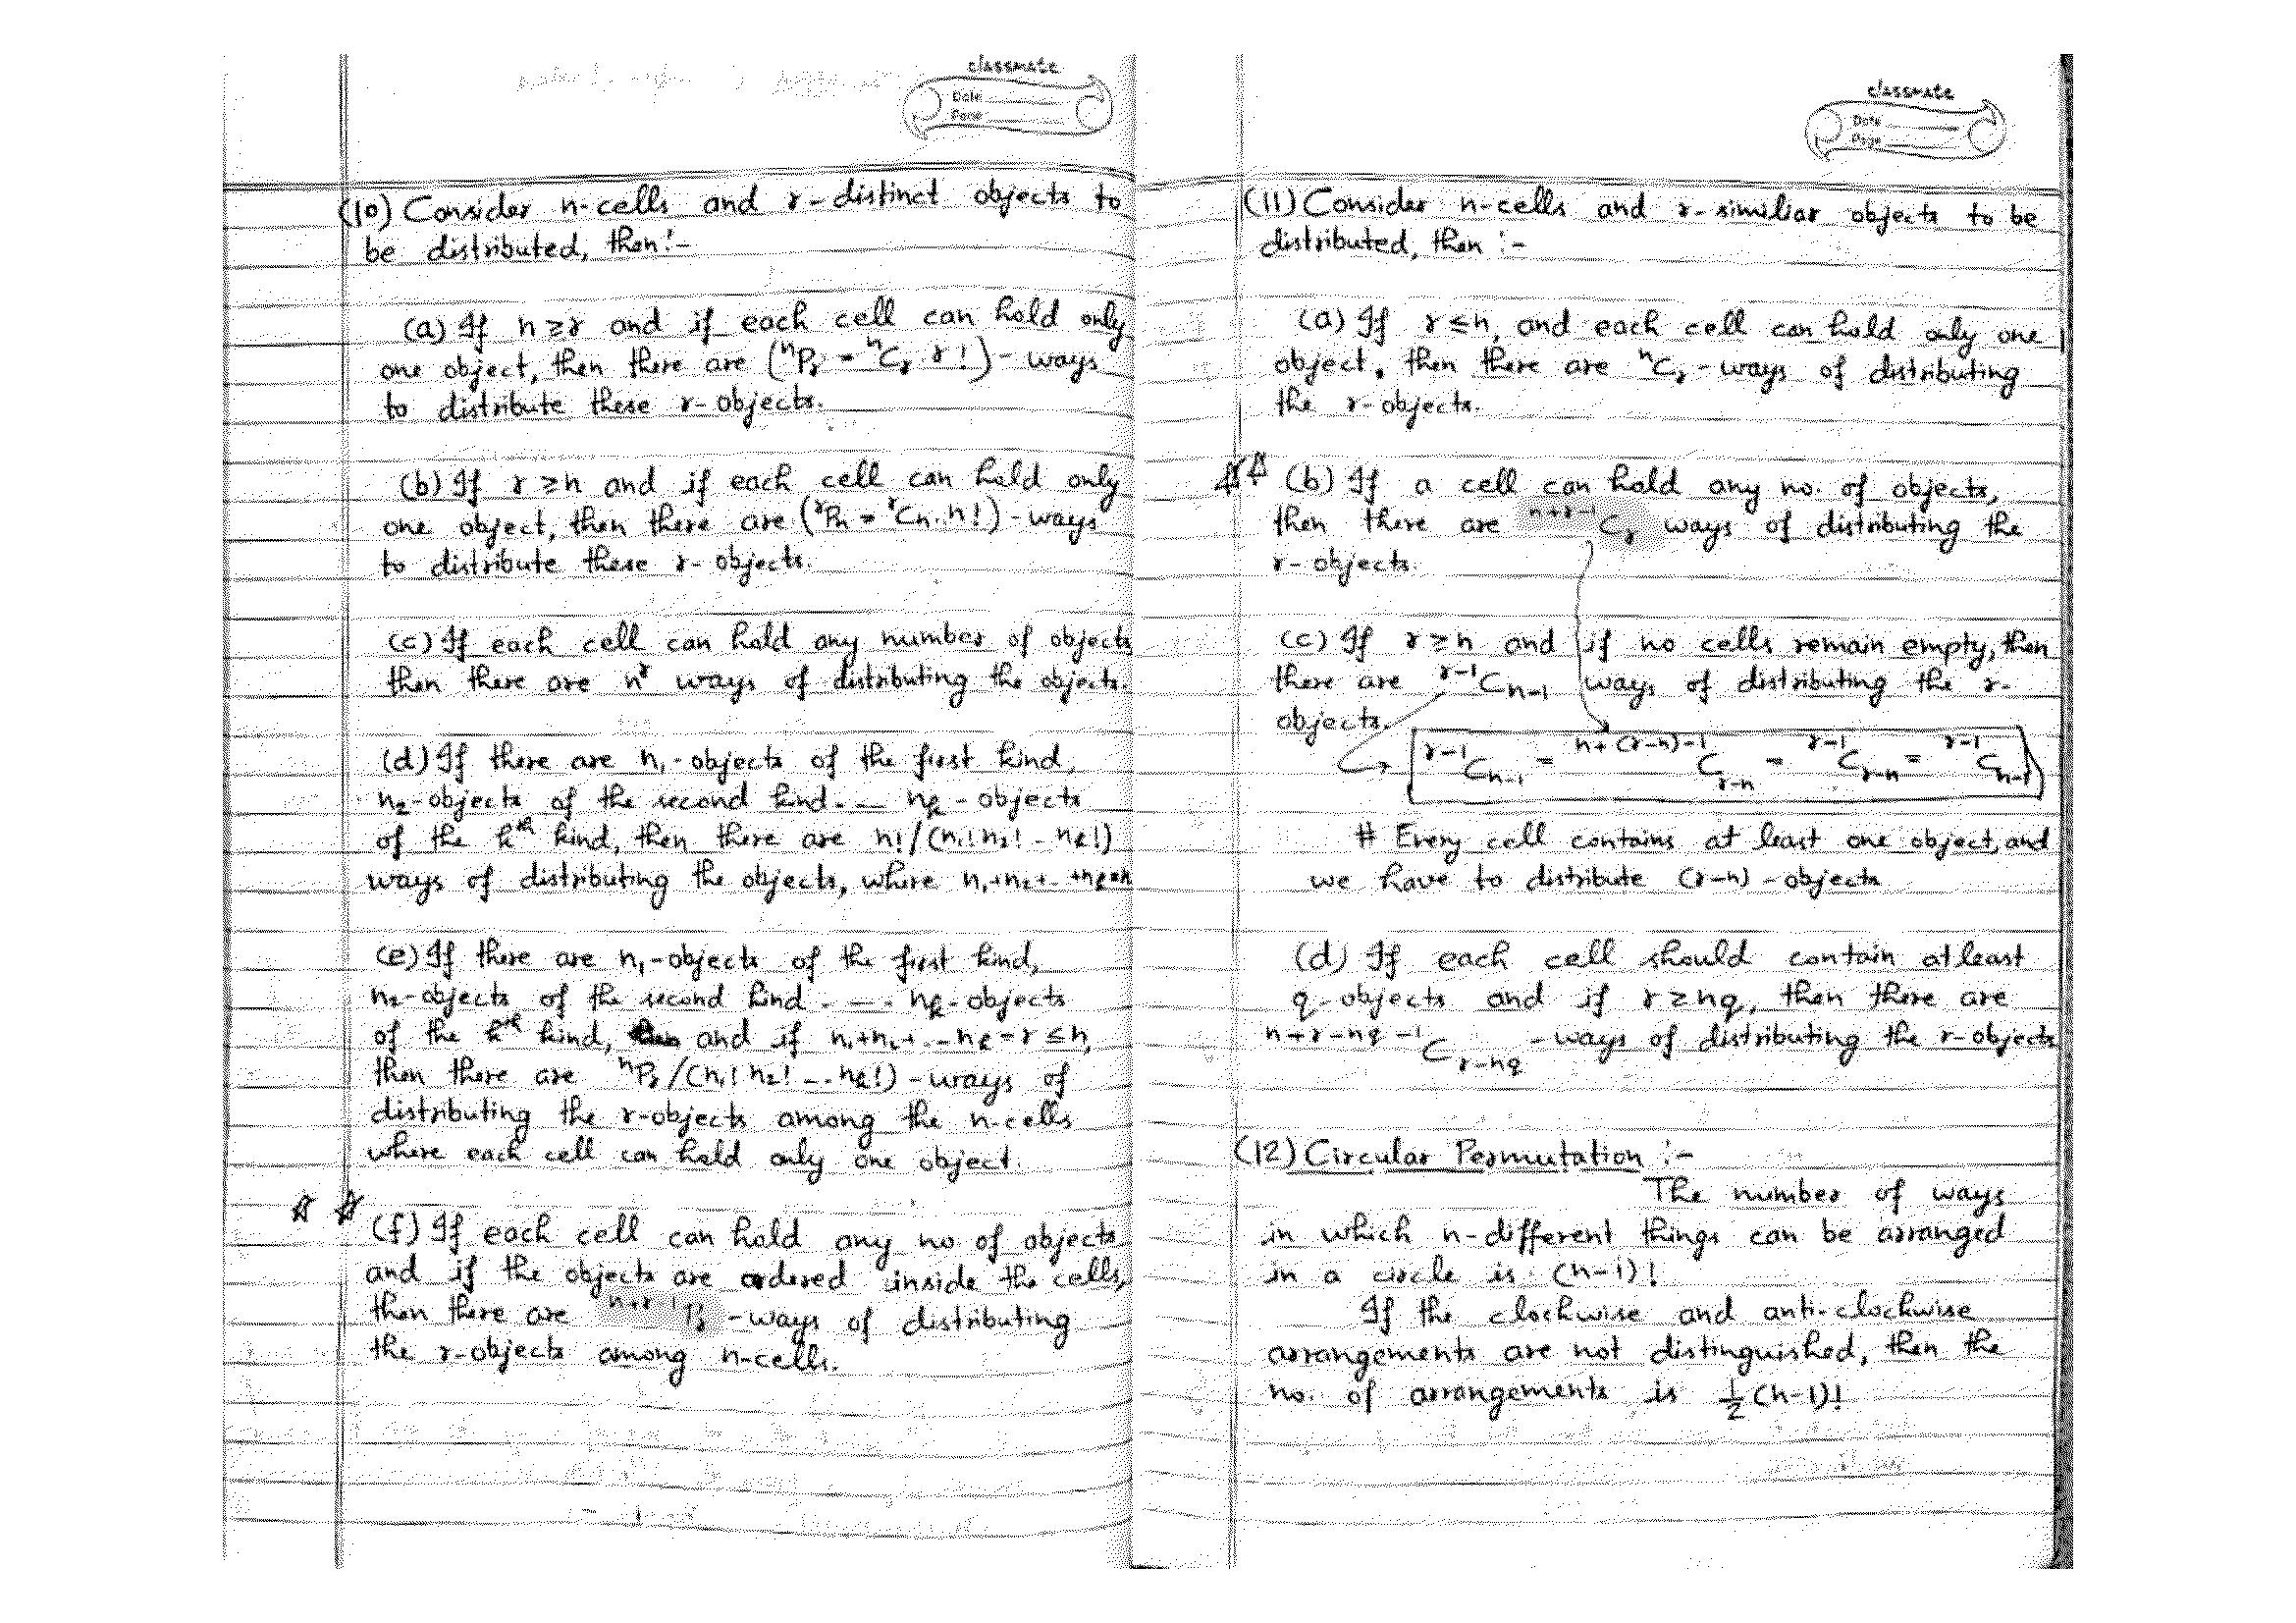 classmate
Date
Page
(10) Consider n-cells and r-distinct objects to
be distributed, then:-
(a) If n≥r and if each cell can hold only
one object, then there are (ⁿPᵣ = ⁿCᵣ r!) - ways
to distribute these r-objects.
(b) If r≥n and if each cell can hold only
one object, then there are (ʳPₙ = ʳCₙ.n!) - ways
to distribute these r-objects.
(c) If each cell can hold any number of objects
then there are nʳ ways of distributing the objects.
(d) If there are n₁-objects of the first kind,
n₂-objects of the second kind.-- nₖ-objects
of the kᵗʰ kind, then there are n!/(n₁!n₂!--nₖ!)
ways of distributing the objects, where n₁+n₂+--+nₖ=n
(e) If there are n₁-objects of the first kind,
n₂-objects of the second kind.--. nₖ-objects
of the kᵗʰ kind, and if n₁+n₂+.--nₖ=r≤n,
then there are ⁿPᵣ/(n₁! n₂! --. nₖ!) - ways of
distributing the r-objects among the n-cells
where each cell can hold only one object.
(f) If each cell can hold any no of objects
and if the objects are ordered inside the cells,
then there are ⁿ⁺ʳ⁻¹Pᵣ -ways of distributing
the r-objects among n-cells.
classmate
Date
Page
(11) Consider n-cells and r-similiar objects to be
distributed, then :-
(a) If r≤n, and each cell can hold only one
object, then there are ⁿCᵣ - ways of distributing
the r-objects.
(b) If a cell can hold any no. of objects,
then there are ⁿ⁺ʳ⁻¹Cᵣ ways of distributing the
r-objects.
(c) If r≥n and if no cells remain empty, then
there are ʳ⁻¹Cₙ₋₁ ways of distributing the r-
objects.
ʳ⁻¹Cₙ₋₁ = ⁿ⁺⁽ʳ⁻ⁿ⁾⁻¹Cᵣ₋ₙ = ʳ⁻¹Cᵣ₋ₙ = ʳ⁻¹Cₙ₋₁
# Every cell contains at least one object, and
we have to distribute (r-n) - objects
(d) If each cell should contain atleast
q-objects and if r≥nq, then there are
n+r-nq-1 C r-nq - ways of distributing the r-objects
(12) Circular Permutation :-
The number of ways
in which n-different things can be arranged
in a circle is (n-1)!
If the clockwise and anti-clockwise
arrangements are not distinguished, then the
no. of arrangements is ½(n-1)!